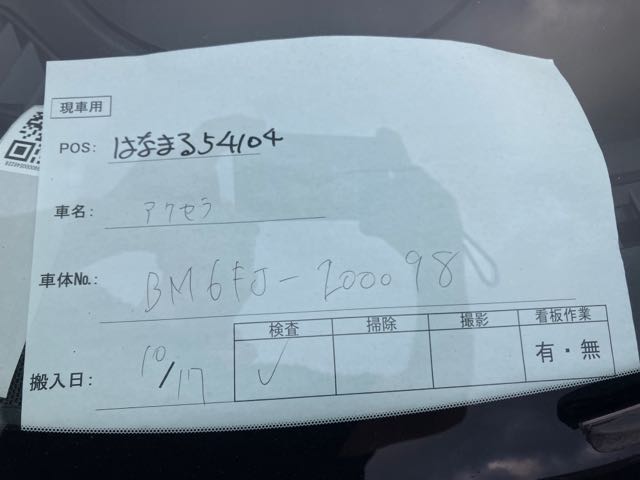 現車用
POS: はなまる54104
車名: アクセラ
車体No.: BM6FJ-200098
検査 掃除 撮影 看板作業
搬入日: 10/17 ✓ 有・無